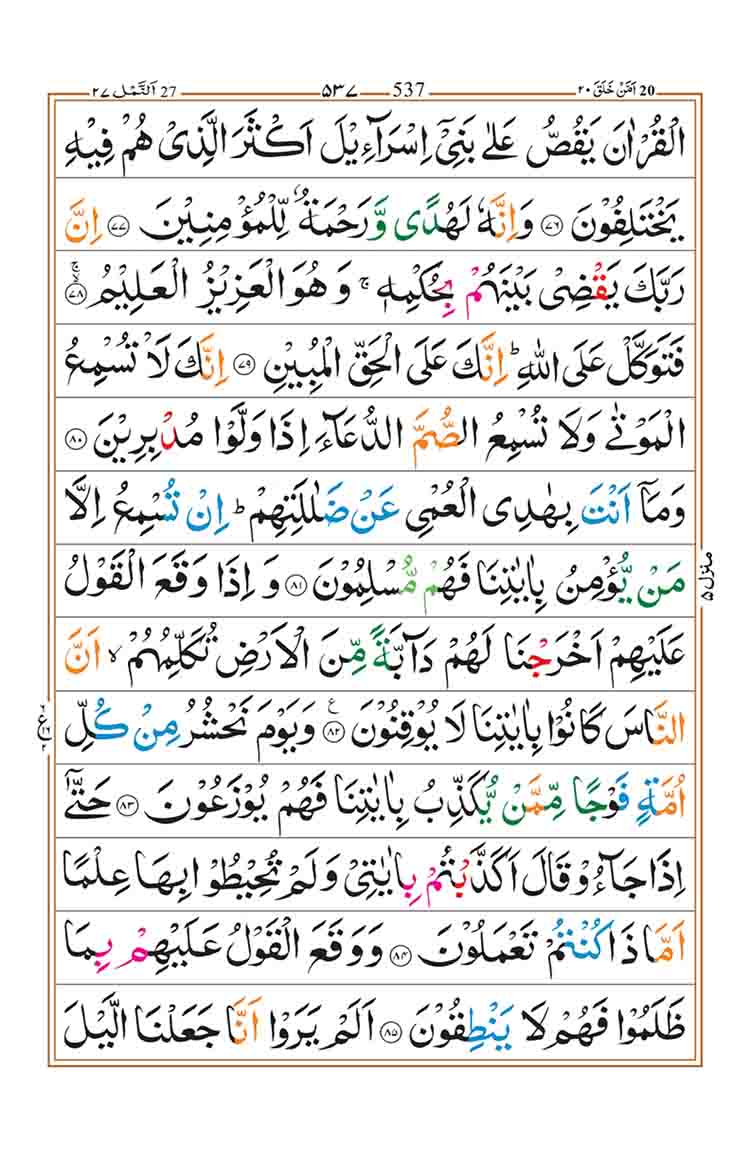 ٢٧ اَلنَّمْل 27
٥٣٧ 537
٢٠ اَمَّنْ خَلَقَ 20
الْقُرْاٰنَ يَقُصُّ عَلٰى بَنِىْۤ اِسْرَآءِيْلَ اَكْثَرَ الَّذِىْ هُمْ فِيْهِ
يَخْتَلِفُوْنَ ﴿٧٦﴾ وَاِنَّهٗ لَهُدًى وَّرَحْمَةٌ لِّلْمُؤْمِنِيْنَ ﴿٧٧﴾ اِنَّ
رَبَّكَ يَقْضِىْ بَيْنَهُمْ بِحُكْمِهٖ ۚ وَهُوَ الْعَزِيْزُ الْعَلِيْمُ ﴿٧٨﴾ ۙۚ
فَتَوَكَّلْ عَلَى اللّٰهِ ؕ اِنَّكَ عَلَى الْحَقِّ الْمُبِيْنِ ﴿٧٩﴾ اِنَّكَ لَا تُسْمِعُ
الْمَوْتٰى وَلَا تُسْمِعُ الصُّمَّ الدُّعَآءَ اِذَا وَلَّوْا مُدْبِرِيْنَ ﴿٨٠﴾
وَمَاۤ اَنْتَ بِهٰدِى الْعُمْىِ عَنْ ضَلٰلَتِهِمْ ؕ اِنْ تُسْمِعُ اِلَّا
مَنْ يُّؤْمِنُ بِاٰيٰتِنَا فَهُمْ مُّسْلِمُوْنَ ﴿٨١﴾ وَاِذَا وَقَعَ الْقَوْلُ
عَلَيْهِمْ اَخْرَجْنَا لَهُمْ دَآبَّةً مِّنَ الْاَرْضِ تُكَلِّمُهُمْ ۙ اَنَّ
النَّاسَ كَانُوْا بِاٰيٰتِنَا لَا يُوْقِنُوْنَ ﴿٨٢﴾ ع وَيَوْمَ نَحْشُرُ مِنْ كُلِّ
اُمَّةٍ فَوْجًا مِّمَّنْ يُّكَذِّبُ بِاٰيٰتِنَا فَهُمْ يُوْزَعُوْنَ ﴿٨٣﴾ حَتّٰٓى
اِذَا جَآءُوْ قَالَ اَكَذَّبْتُمْ بِاٰيٰتِىْ وَلَمْ تُحِيْطُوْا بِهَا عِلْمًا
اَمَّا ذَا كُنْتُمْ تَعْمَلُوْنَ ﴿٨٤﴾ وَوَقَعَ الْقَوْلُ عَلَيْهِمْ بِمَا
ظَلَمُوْا فَهُمْ لَا يَنْطِقُوْنَ ﴿٨٥﴾ اَلَمْ يَرَوْا اَنَّا جَعَلْنَا الَّيْلَ
منزل ٥